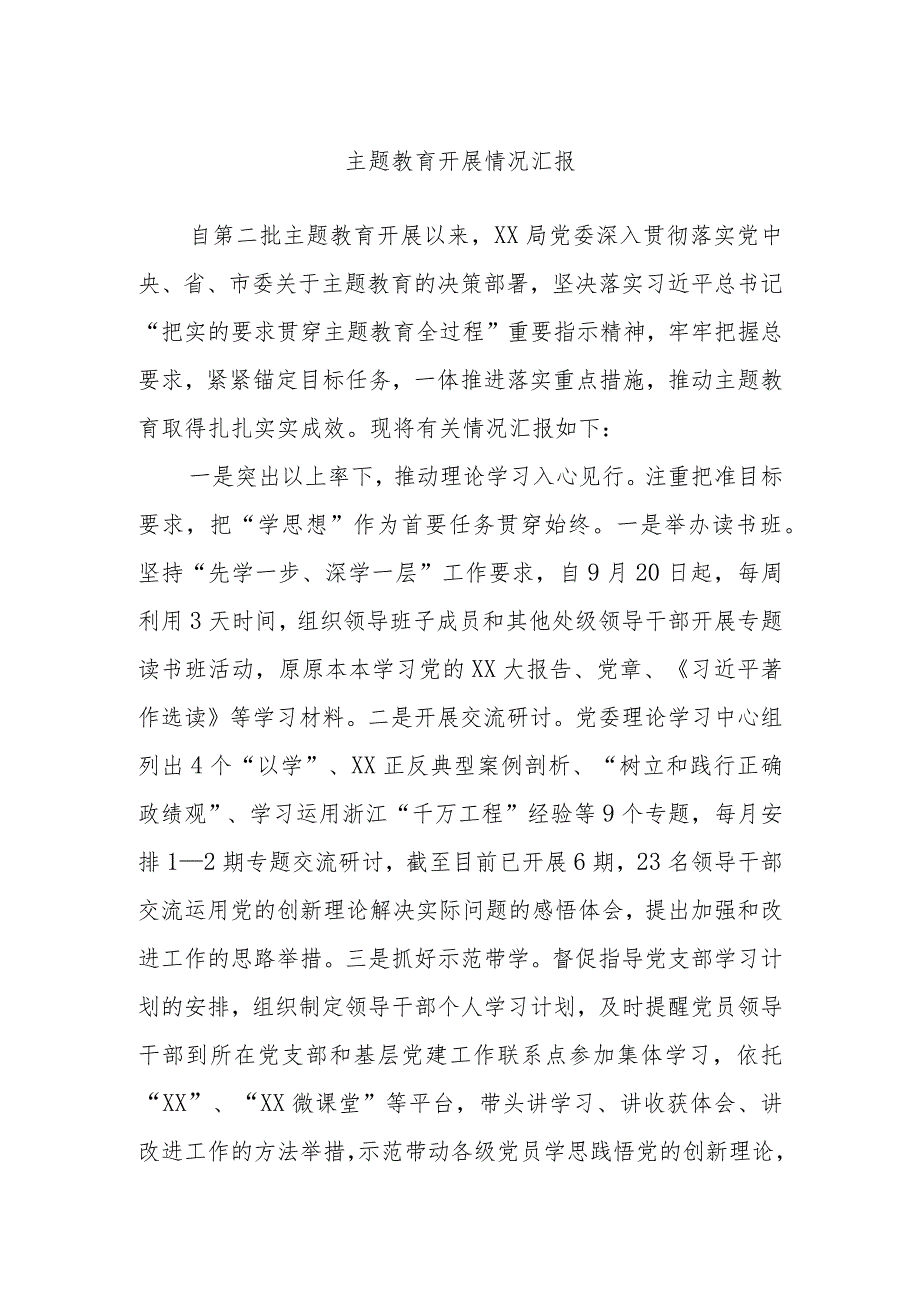 主题教育开展情况汇报
自第二批主题教育开展以来，XX 局党委深入贯彻落实党中
央、省、市委关于主题教育的决策部署，坚决落实习近平总书记
“把实的要求贯穿主题教育全过程”重要指示精神，牢牢把握总
要求，紧紧锚定目标任务，一体推进落实重点措施，推动主题教
育取得扎扎实实成效。现将有关情况汇报如下：
一是突出以上率下，推动理论学习入心见行。注重把准目标
要求，把“学思想”作为首要任务贯穿始终。一是举办读书班。
坚持“先学一步、深学一层”工作要求，自 9 月 20 日起，每周
利用 3 天时间，组织领导班子成员和其他处级领导干部开展专题
读书班活动，原原本本学习党的 XX 大报告、党章、《习近平著
作选读》等学习材料。二是开展交流研讨。党委理论学习中心组
列出 4 个“以学”、XX 正反典型案例剖析、“树立和践行正确
政绩观”、学习运用浙江“千万工程”经验等 9 个专题，每月安
排 1—2 期专题交流研讨，截至目前已开展 6 期，23 名领导干部
交流运用党的创新理论解决实际问题的感悟体会，提出加强和改
进工作的思路举措。三是抓好示范带学。督促指导党支部学习计
划的安排，组织制定领导干部个人学习计划，及时提醒党员领导
干部到所在党支部和基层党建工作联系点参加集体学习，依托
“XX”、“XX 微课堂”等平台，带头讲学习、讲收获体会、讲
改进工作的方法举措，示范带动各级党员学思践悟党的创新理论，